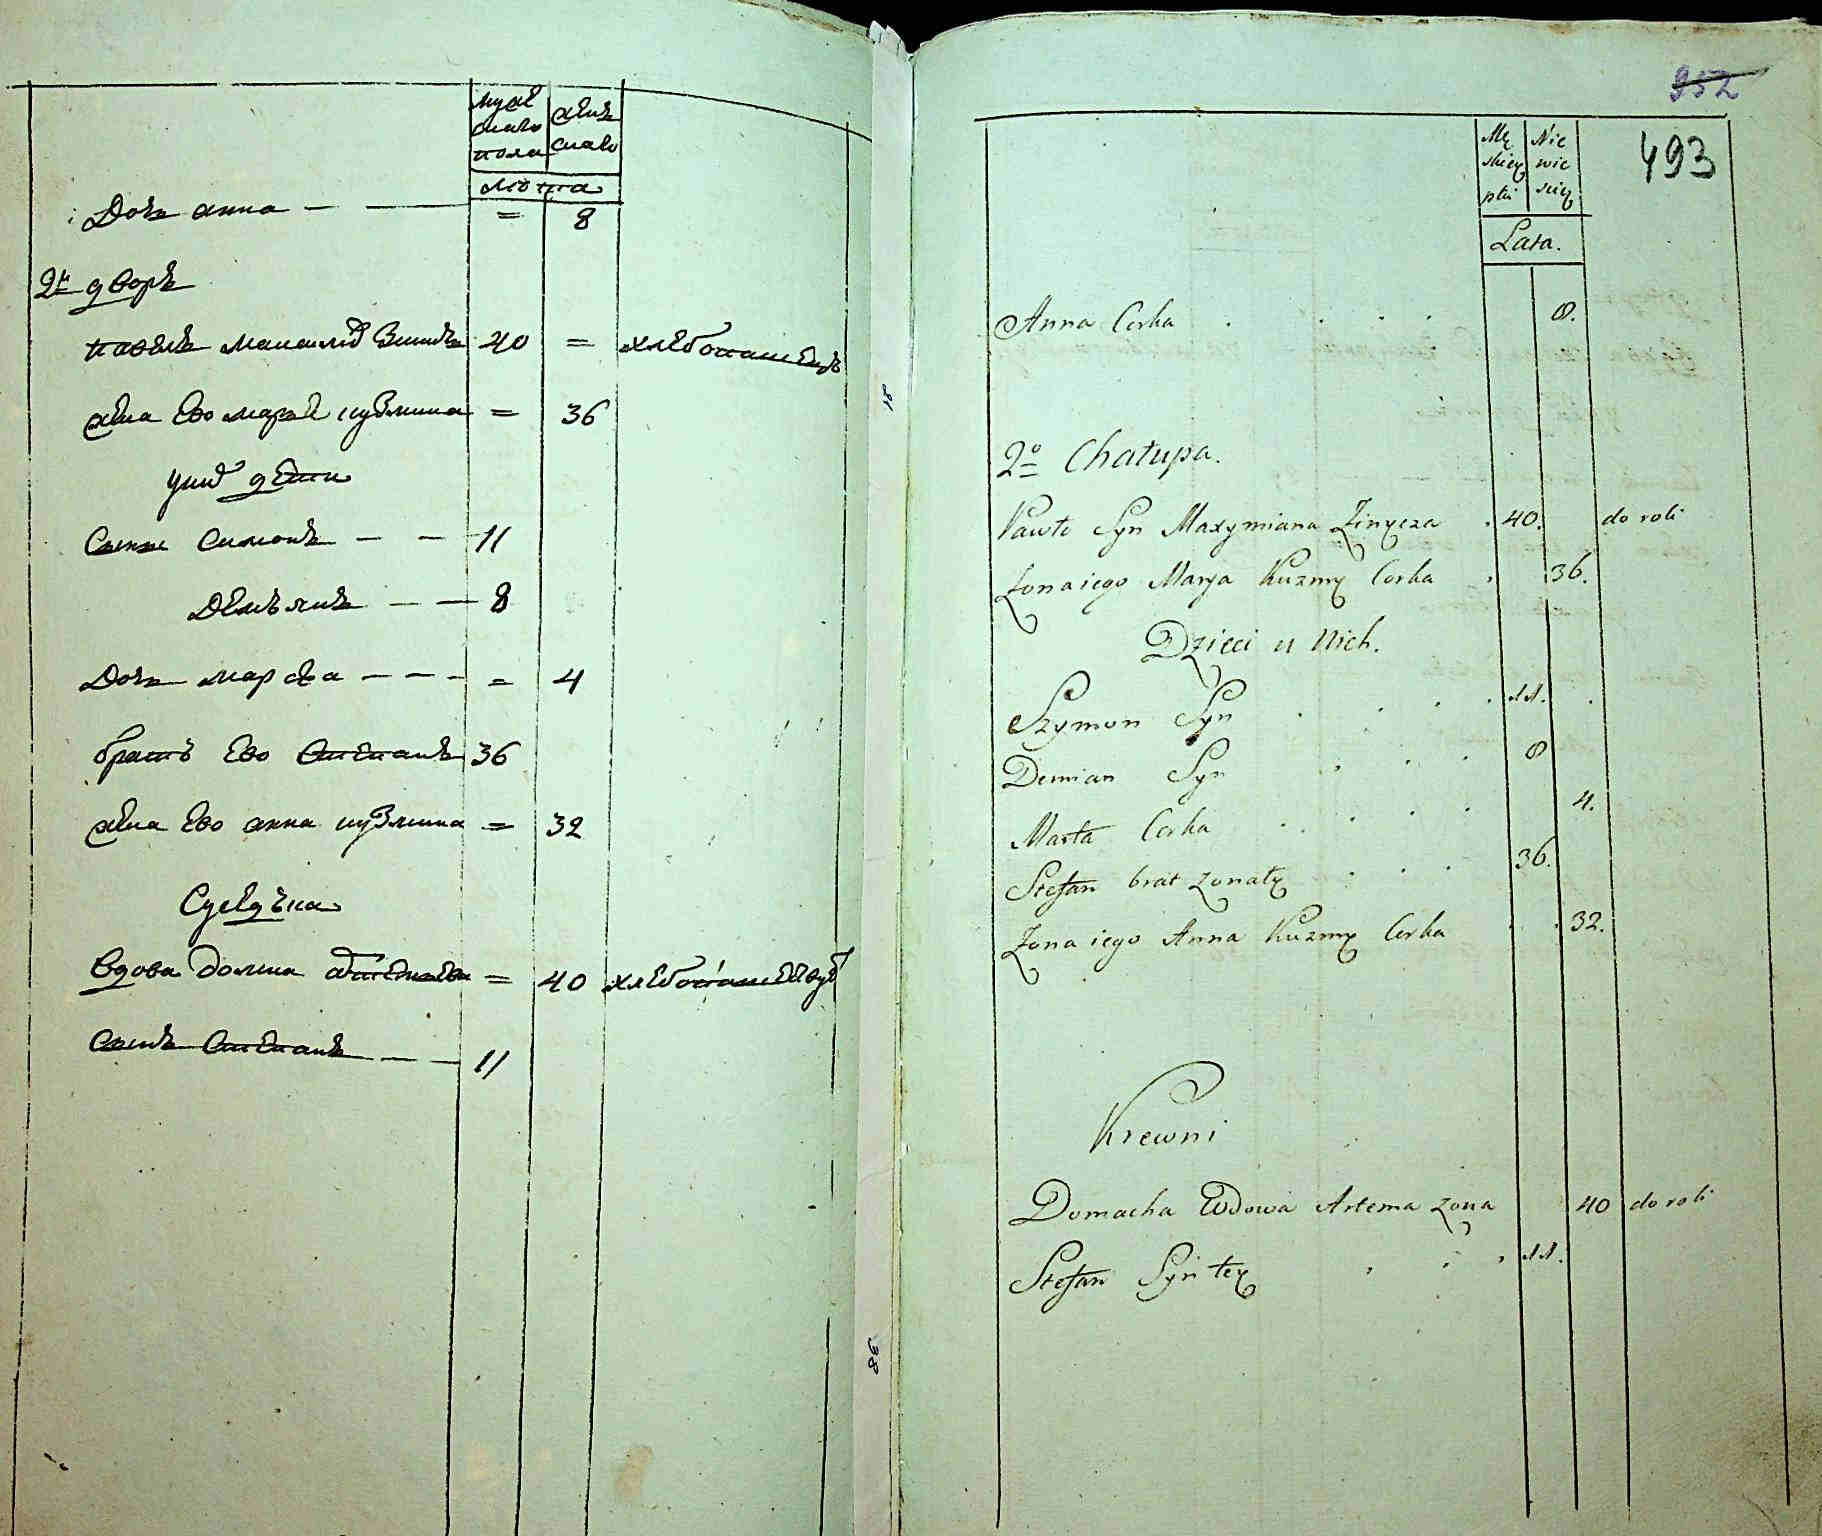 муже
скаго
пола
женъ
скаго
лѣта
Дочь анна — — = 8
2й дворъ
павелъ 40 = хлебопашецъ
жена Ево маръя кузмина = 36
уних дети
Сынъ Симонъ — — 11
Демъянъ — — 8
Дочь марѳа — — — = 4
братъ Ево Степанъ 36
жена Ево анна кузмина = 32
вдова домна = 40
Сынъ Степанъ — — 11
18
38
952
493
Mę
skiey
płci
Nie
wie
sciey
Lata.
Anna Corka . . . . . 8.
2o Chałupa.
Pawło Syn Maxymiana Zinycza . 40. do roli
Zona iego Marya Kuzmy Corka . 36.
Dzieci u Nich.
Szymon Syn . . . . 11. .
Demian Syn . . . 8
Marta Corka . . . . 4.
Stefan brat zonaty . . . 36.
Zona iego Anna Kuzmy Corka . . 32.
Krewni
Domacha Wdowa Artema zona 40 do roli
Stefan Syn tey . . . 11.